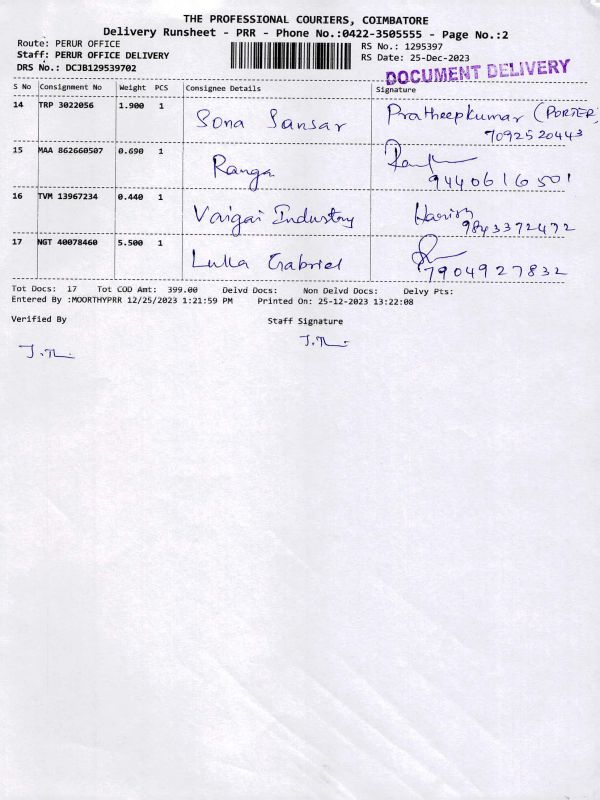 THE PROFESSIONAL COURIERS, COIMBATORE
Delivery Runsheet - PRR - Phone No.:0422-3505555 - Page No.:2
Route: PERUR OFFICE
RS No.: 1295397
Staff: PERUR OFFICE DELIVERY
RS Date: 25-Dec-2023
DRS No.: DCJB129539702
DOCUMENT DELIVERY
S No Consignment No Weight PCS Consignee Details Signature
14 TRP 3022056 1.900 1 Sona Sansar Pratheepkumar (PORTER)
7092520443
15 MAA 862660507 0.690 1 Ranga
9440616501
16 TVM 13967234 0.440 1 Vaigai Industry Harish
9843372472
17 NGT 40078460 5.500 1 Lulla Gabriel
7904927832
Tot Docs: 17 Tot COD Amt: 399.00 Delvd Docs: Non Delvd Docs: Delvy Pts:
Entered By :MOORTHYPRR 12/25/2023 1:21:59 PM Printed On: 25-12-2023 13:22:08
Verified By Staff Signature